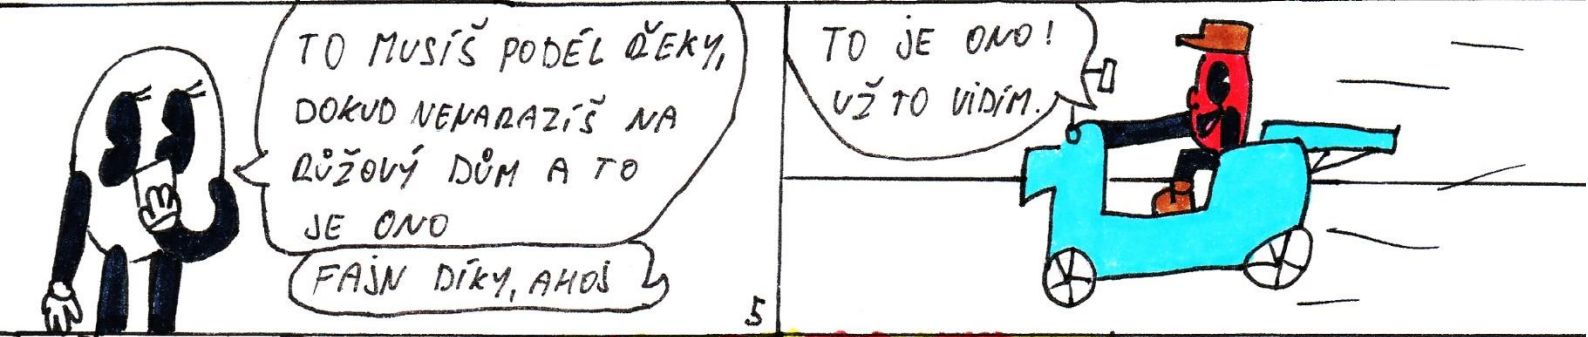 TO MUSÍŠ PODÉL ŘEKY,
DOKUD NENARAZÍŠ NA
RŮŽOVÝ DŮM A TO
JE ONO
FAJN DÍKY, AHOJ
5
TO JE ONO!
UŽ TO VIDÍM.